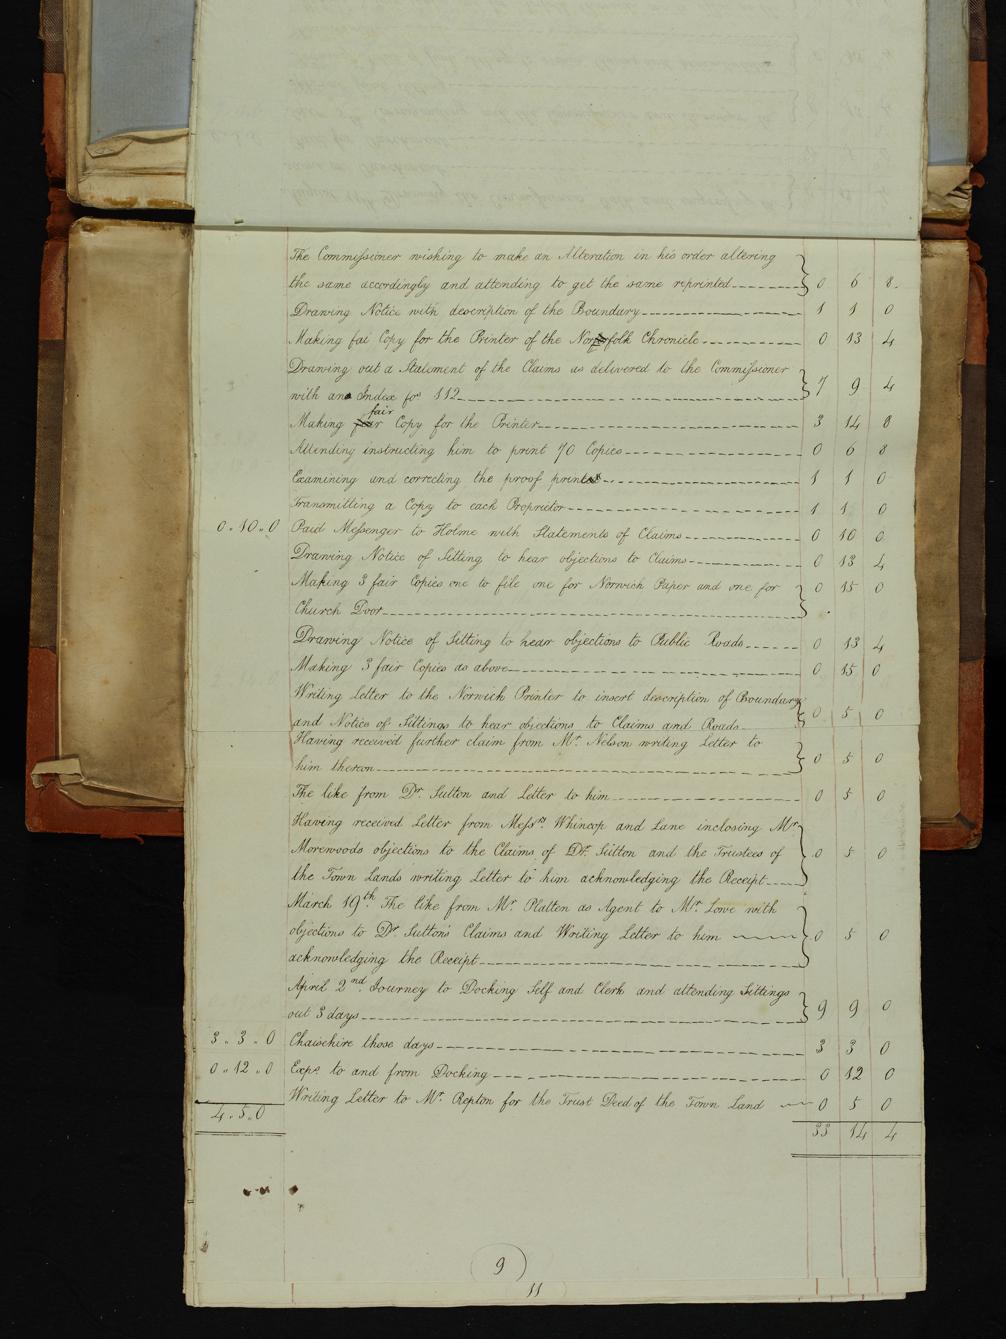 The Commissioner wishing to make an Alteration in his order altering
the same accordingly and attending to get the same reprinted 0 6 8
Drawing Notice with description of the Boundary 1 1 0
Making fai Copy for the Printer of the Norfolk Chronicle 0 13 4
Drawing out a Statement of the Claims as delivered to the Commissioner
with an Index fos 112 7 9 4
Making fair Copy for the Printer 3 14 8
Attending instructing him to print 70 Copies 0 6 8
Examining and correcting the proof prints 1 1 0
Transmitting a Copy to each Proprietor 1 1 0
0.10.0 Paid Messenger to Holme with Statements of Claims 0 10 0
Drawing Notice of Sitting to hear objections to Claims 0 13 4
Making 3 fair Copies one to file one for Norwich Paper and one for 0 15 0
Church Door
Drawing Notice of Sitting to hear objections to Public Roads 0 13 4
Making 3 fair Copies as above 0 15 0
Writing Letter to the Norwich Printer to insert description of Boundary
and Notice of Sittings to hear objections to Claims and Roads 0 5 0
Having received further claim from Mr. Nelson writing Letter to
him thereon 0 5 0
The like from Dr. Sutton and Letter to him 0 5 0
Having received Letter from Messrs. Whincop and Lane inclosing Mr.
Morewoods objections to the Claims of Dr. Sutton and the Trustees of 0 5 0
the Town Lands writing Letter to him acknowledging the Receipt
March 19th. The like from Mr. Platten as Agent to Mr. Lowe with
objections to Dr. Sutton's Claims and Writing Letter to him 0 5 0
acknowledging the Receipt
April 2nd. Journey to Docking Self and Clerk and attending Sittings
out 3 days 9 9 0
3.3.0 Chaisehire those days 3 3 0
0.12.0 Exps. to and from Docking 0 12 0
Writing Letter to Mr. Repton for the Trust Deed of the Town Land 0 5 0
4.5.0
33 14 4
9
11